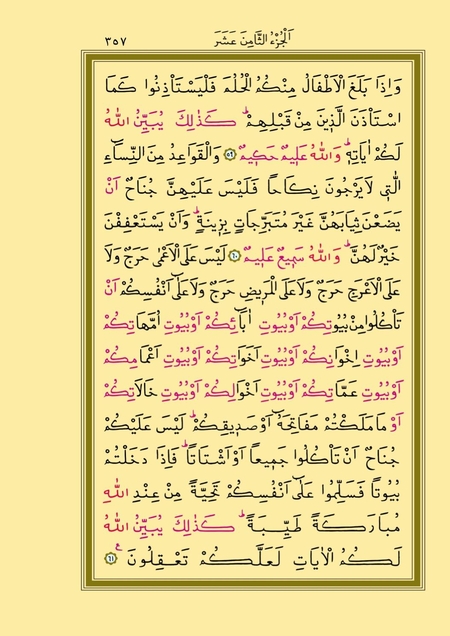 اَلْجُزْءُ الثَّامِنَ عَشَرَ ٣٥٧
وَاِذَا بَلَغَ الْاَطْفَالُ مِنْكُمُ الْحُلُمَ فَلْيَسْتَأْذِنُوا كَمَا
اسْتَأْذَنَ الَّذ۪ينَ مِنْ قَبْلِهِمْۜ كَذٰلِكَ يُبَيِّنُ اللّٰهُ
لَكُمْ اٰيَاتِه۪ۜ وَاللّٰهُ عَل۪يمٌ حَك۪يمٌ ﴿٥٩﴾ وَالْقَوَاعِدُ مِنَ النِّسَٓاءِ
الّٰت۪ي لَا يَرْجُونَ نِكَاحاً فَلَيْسَ عَلَيْهِنَّ جُنَاحٌ اَنْ
يَضَعْنَ ثِيَابَهُنَّ غَيْرَ مُتَبَرِّجَاتٍ بِز۪ينَةٍۜ وَاَنْ يَسْتَعْفِفْنَ
خَيْرٌ لَهُنَّۜ وَاللّٰهُ سَم۪يعٌ عَل۪يمٌ ﴿٦٠﴾ لَيْسَ عَلَى الْاَعْمٰى حَرَجٌ وَلَا
عَلَى الْاَعْرَجِ حَرَجٌ وَلَا عَلَى الْمَر۪يضِ حَرَجٌ وَلَا عَلٰٓى اَنْفُسِكُمْ اَنْ
تَأْكُلُوا مِنْ بُيُوتِكُمْ اَوْ بُيُوتِ اٰبَٓائِكُمْ اَوْ بُيُوتِ اُمَّهَاتِكُمْ
اَوْ بُيُوتِ اِخْوَانِكُمْ اَوْ بُيُوتِ اَخَوَاتِكُمْ اَوْ بُيُوتِ اَعْمَامِكُمْ
اَوْ بُيُوتِ عَمَّاتِكُمْ اَوْ بُيُوتِ اَخْوَالِكُمْ اَوْ بُيُوتِ خَالَاتِكُمْ
اَوْ مَا مَلَكْتُمْ مَفَاتِحَهُٓ اَوْ صَد۪يقِكُمْۜ لَيْسَ عَلَيْكُمْ
جُنَاحٌ اَنْ تَأْكُلُوا جَم۪يعاً اَوْ اَشْتَاتاًۜ فَاِذَا دَخَلْتُمْ
بُيُوتاً فَسَلِّمُوا عَلٰٓى اَنْفُسِكُمْ تَحِيَّةً مِنْ عِنْدِ اللّٰهِ
مُبَارَكَةً طَيِّبَةًۜ كَذٰلِكَ يُبَيِّنُ اللّٰهُ
لَكُمُ الْاٰيَاتِ لَعَلَّكُمْ تَعْقِلُونَ۟ ﴿٦١﴾ ع